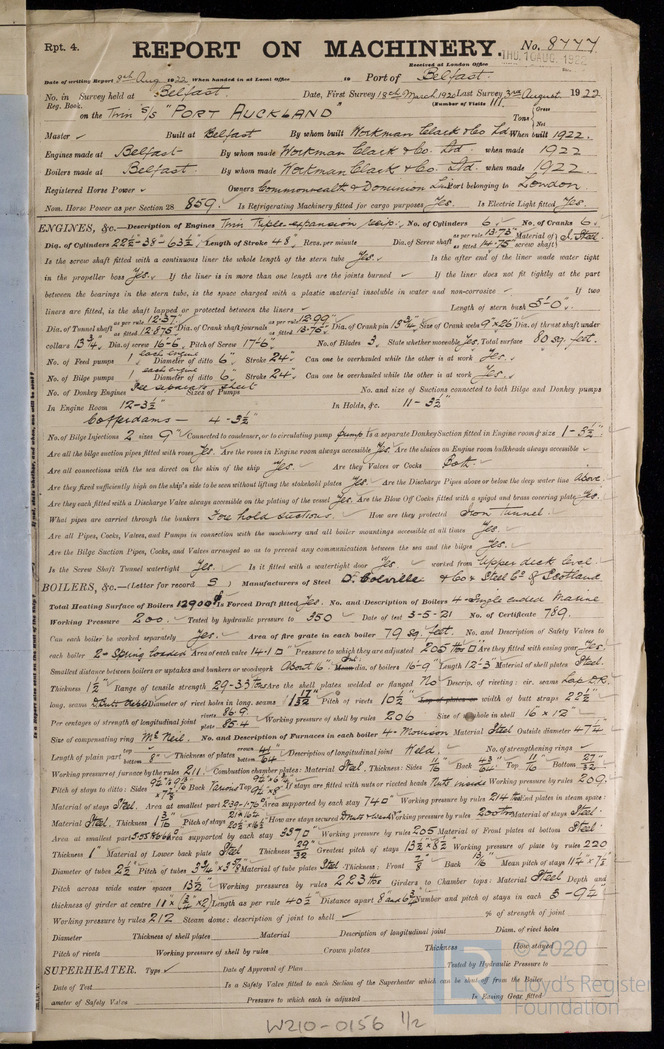 Rpt. 4.
REPORT ON MACHINERY. No. 8777
THU. 10 AUG. 1922
Received at London Office
Date of writing Report 9th Aug 1922 When handed in at Local Office 19 Port of Belfast.
No. in Survey held at Belfast. Date, First Survey 18th March 1920 Last Survey 3rd August 1922
Reg. Book. (Number of Visits 111
on the Twin S/S "PORT AUCKLAND" Tons Gross Net
Master Built at Belfast By whom built Workman Clark & Co Ltd When built 1922.
Engines made at Belfast By whom made Workman Clark & Co. Ltd. when made 1922
Boilers made at Belfast. By whom made Workman Clark & Co. Ltd. when made 1922.
Registered Horse Power Owners Commonwealth & Dominion Line Port belonging to London
Nom. Horse Power as per Section 28 859. Is Refrigerating Machinery fitted for cargo purposes Yes. Is Electric Light fitted Yes.
ENGINES, &c.—Description of Engines Twin Triple expansion recip. No. of Cylinders 6. No. of Cranks 6.
Dia. of Cylinders 22½-38-63½" Length of Stroke 48" Revs. per minute Dia. of Screw shaft as per rule 13.75" as fitted 14.75" Material of screw shaft) I. Steel
Is the screw shaft fitted with a continuous liner the whole length of the stern tube Yes. Is the after end of the liner made water tight
in the propeller boss Yes. If the liner is in more than one length are the joints burned If the liner does not fit tightly at the part
between the bearings in the stern tube, is the space charged with a plastic material insoluble in water and non-corrosive If two
liners are fitted, is the shaft lapped or protected between the liners Length of stern bush 5'-0".
Dia. of Tunnel shaft as per rule 12.37" as fitted 12.875" Dia. of Crank shaft journals as per rule 12.99" as fitted 13.75" Dia. of Crank pin 13¾" Size of Crank webs 9"x26" Dia. of thrust shaft under
collars 13¾" Dia. of screw 16-6" Pitch of Screw 17'-6" No. of Blades 3. State whether moveable Yes. Total surface 80 sq. feet.
No. of Feed pumps 1 each engine Diameter of ditto 6" Stroke 24" Can one be overhauled while the other is at work Yes.
No. of Bilge pumps 1 each engine Diameter of ditto 6" Stroke 24" Can one be overhauled while the other is at work Yes.
No. of Donkey Engines See separate sheet Sizes of Pumps No. and size of Suctions connected to both Bilge and Donkey pumps
In Engine Room 12-3½" In Holds, &c. 11-3½"
Cofferdams — 4-3½"
No. of Bilge Injections 2 sizes 9" Connected to condenser, or to circulating pump pump Is a separate Donkey Suction fitted in Engine room & size 1-5½"
Are all the bilge suction pipes fitted with roses Yes. Are the roses in Engine room always accessible Yes. Are the sluices on Engine room bulkheads always accessible
Are all connections with the sea direct on the skin of the ship Yes. Are they Valves or Cocks Both.
Are they fixed sufficiently high on the ship's side to be seen without lifting the stokehold plates Yes. Are the Discharge Pipes above or below the deep water line Above.
Are they each fitted with a Discharge Valve always accessible on the plating of the vessel Yes. Are the Blow Off Cocks fitted with a spigot and brass covering plate Yes.
What pipes are carried through the bunkers Fore hold suctions. How are they protected Iron tunnel.
Are all Pipes, Cocks, Valves, and Pumps in connection with the machinery and all boiler mountings accessible at all times Yes.
Are the Bilge Suction Pipes, Cocks, and Valves arranged so as to prevent any communication between the sea and the bilges Yes.
Is the Screw Shaft Tunnel watertight Yes. Is it fitted with a watertight door Yes. worked from Upper deck level
BOILERS, &c.—(Letter for record S ) Manufacturers of Steel D. Colville & Co & Steel Co. of Scotland
Total Heating Surface of Boilers 12900 Is Forced Draft fitted Yes. No. and Description of Boilers 4-Single ended Marine
Working Pressure 200. Tested by hydraulic pressure to 350 Date of test 3-5-21 No. of Certificate 789.
Can each boiler be worked separately Yes. Area of fire grate in each boiler 79 sq. feet. No. and Description of Safety Valves to
each boiler 2-Spring loaded Area of each valve 14.1 Pressure to which they are adjusted 205 lbs Are they fitted with easing gear Yes
Smallest distance between boilers or uptakes and bunkers or woodwork About 16" dia. of boilers 16-9" Length 12'-3" Material of shell plates Steel.
Thickness 1½" Range of tensile strength 29-33 tons Are the shell plates welded or flanged No Descrip. of riveting: cir. seams Lap DR.
long. seams Diameter of rivet holes in long. seams 1 17/32" Pitch of rivets 10½" width of butt straps 22½"
Per centages of strength of longitudinal joint rivets 86.9 plate 85.4 Working pressure of shell by rules 206 Size of manhole in shell 16"x12"
Size of compensating ring McNeil. No. and Description of Furnaces in each boiler 4-Morison Material Steel Outside diameter 47¼"
Length of plain part top bottom 8" Thickness of plates crown bottom 41/64" Description of longitudinal joint Weld. No. of strengthening rings
Working pressure of furnace by the rules 211 Combustion chamber plates: Material Steel. Thickness: Sides 11/16" Back 43/64" Top 11/16" Bottom 27/32"
Pitch of stays to ditto: Sides Back Various Top If stays are fitted with nuts or riveted heads Nuts inside Working pressure by rules 209.
Material of stays Steel. Area at smallest part Area supported by each stay 740" Working pressure by rules 214 lbs End plates in steam space:
Material Steel. Thickness 1 3/16" Pitch of stays How are stays secured Working pressure by rules 200 Material of stays Steel.
Area at smallest part Area supported by each stay 3370" Working pressure by rules 205 Material of Front plates at bottom Steel.
Thickness 1" Material of Lower back plate Steel Thickness 29/32" Greatest pitch of stays 13½"x8½" Working pressure of plate by rules 220
Diameter of tubes 2½" Pitch of tubes 3¾"x3⅝" Material of tube plates Steel. Thickness: Front 7/8" Back 13/16" Mean pitch of stays
Pitch across wide water spaces 13½" Working pressures by rules 223 lbs Girders to Chamber tops: Material Steel Depth and
thickness of girder at centre 11"x(¾"x2) Length as per rule 40½" Distance apart Number and pitch of stays in each 3-9¼"
Working pressure by rules 212 Steam dome: description of joint to shell % of strength of joint
Diameter Thickness of shell plates Material Description of longitudinal joint Diam. of rivet holes
Pitch of rivets Working pressure of shell by rules Crown plates Thickness How stayed
SUPERHEATER. Type Date of Approval of Plan Tested by Hydraulic Pressure to
Date of Test Is a Safety Valve fitted to each Section of the Superheater which can be shut off from the Boiler
ameter of Safety Valve Pressure to which each is adjusted Is Easing Gear fitted
© 2020
Lloyd's Register
Foundation
W210-0156 1/2